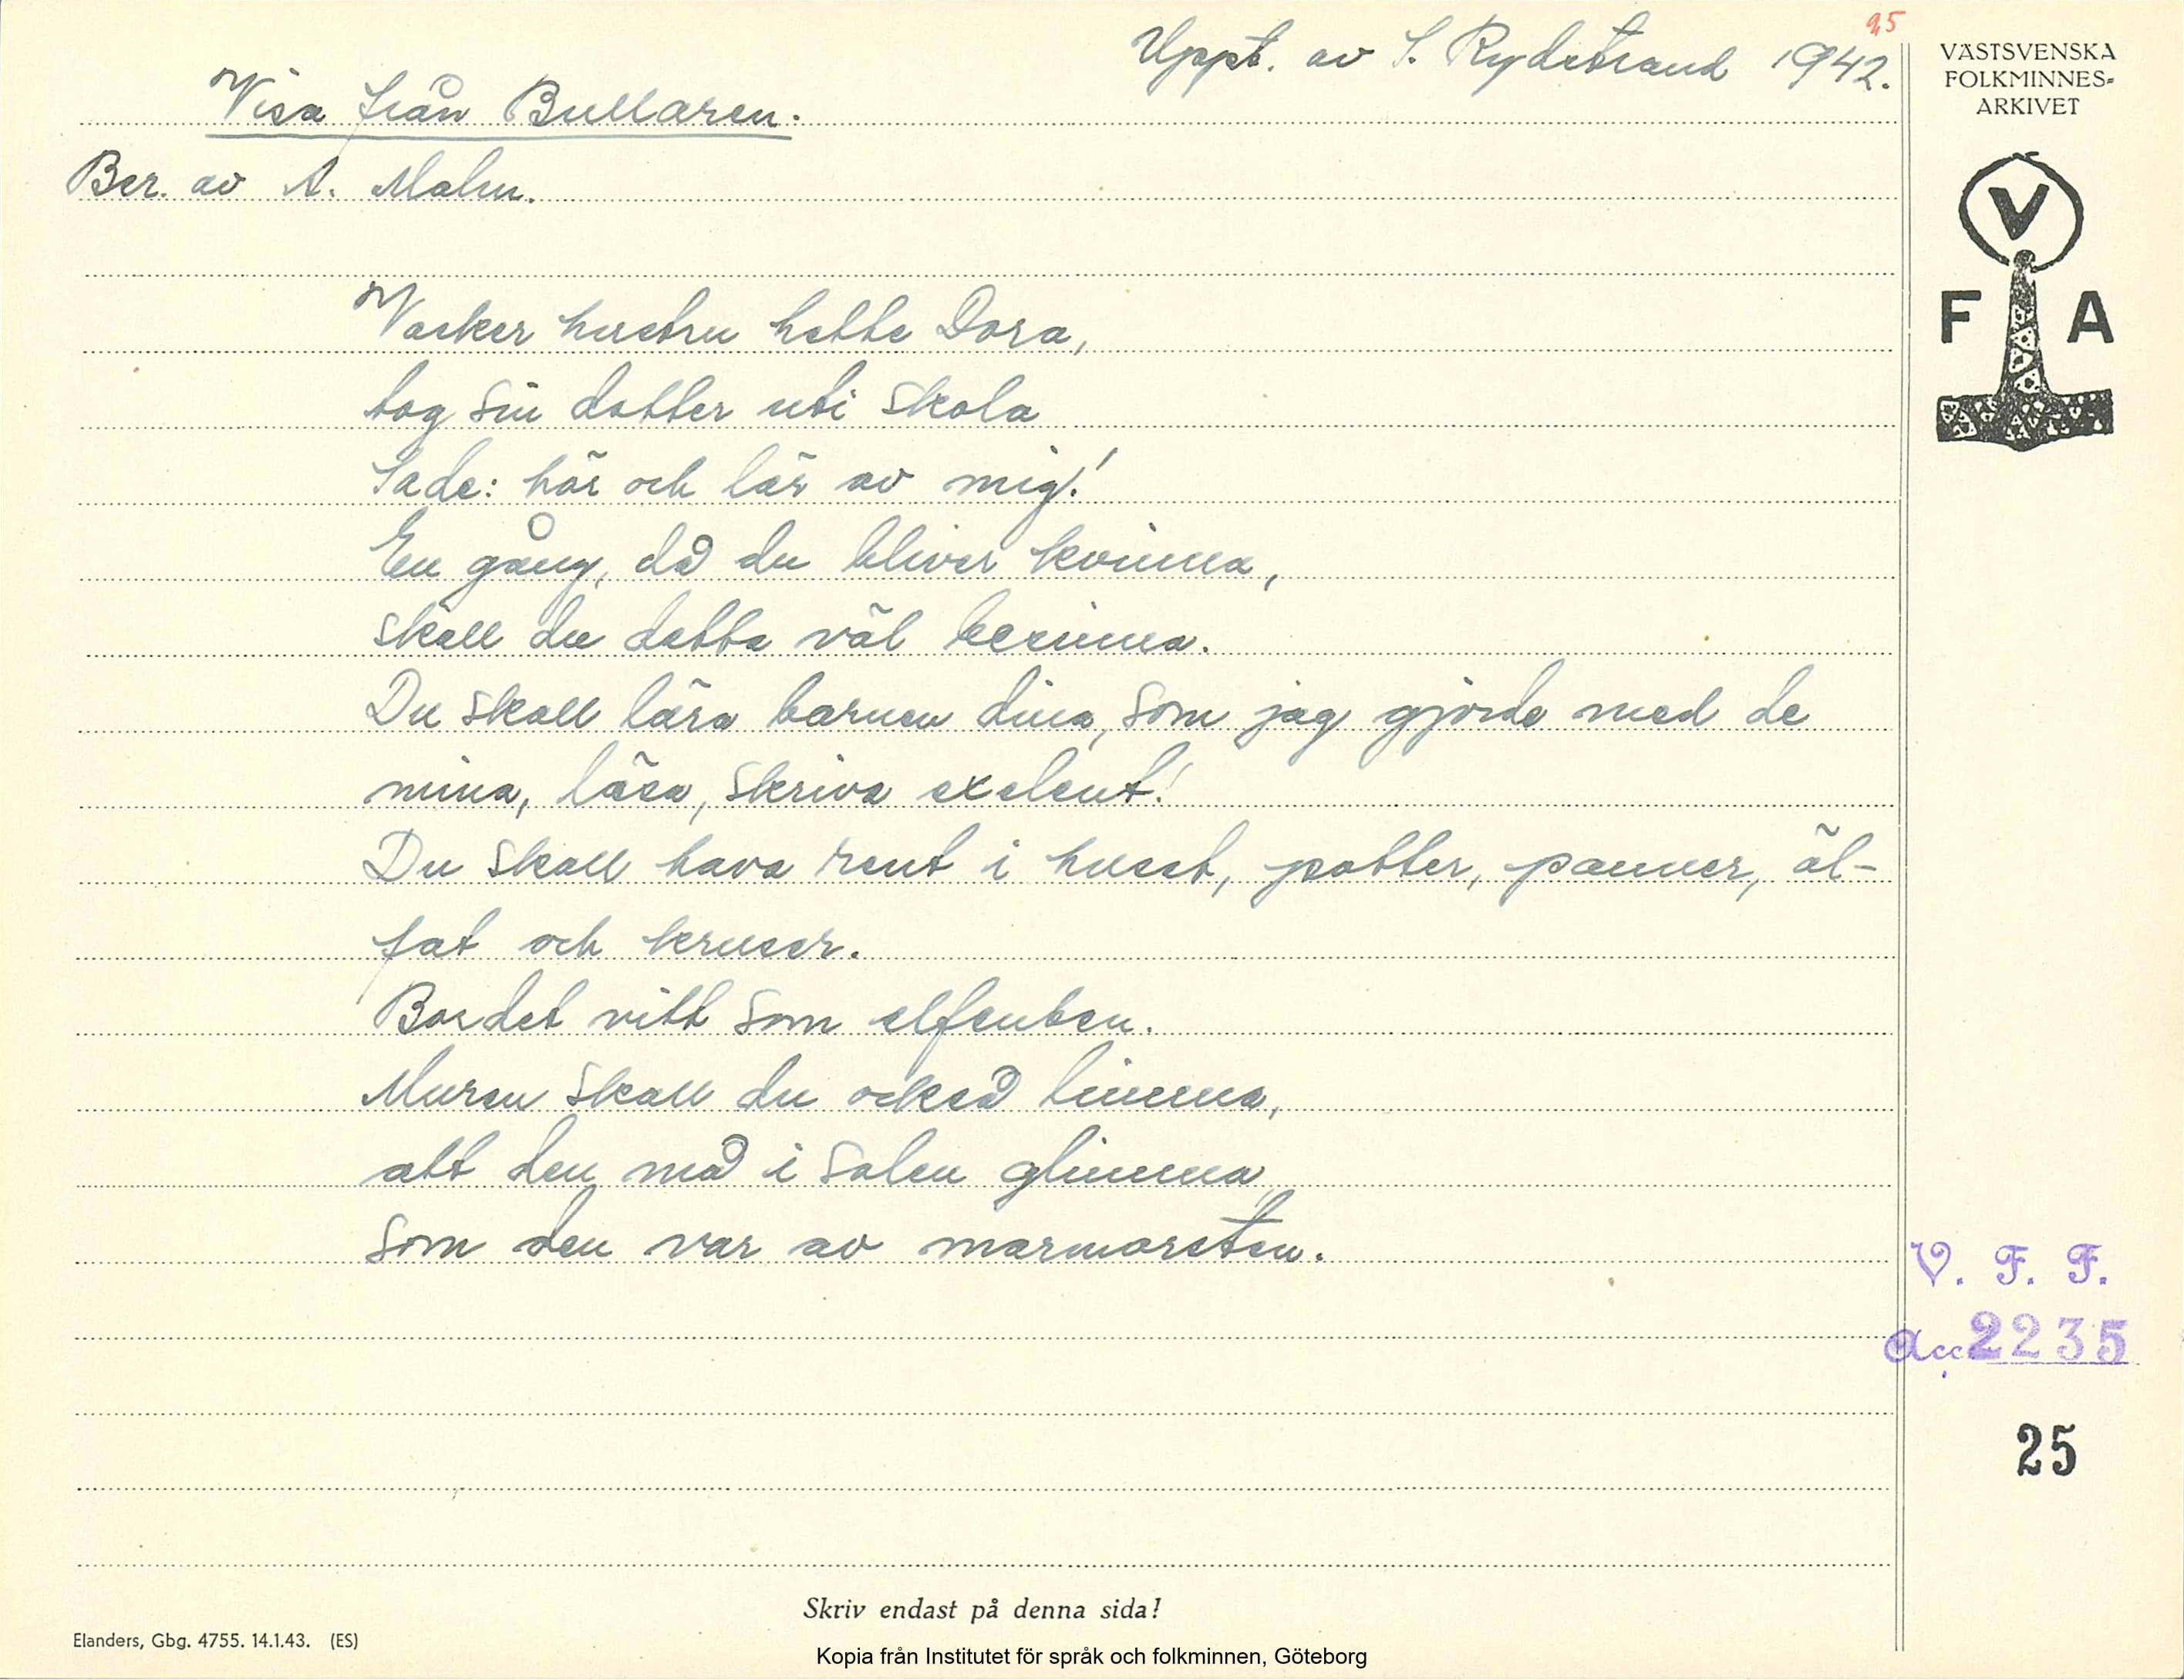 25
Uppt. av S. Rydstrand 1942.
Visa från Bullaren.
Ber. av A. Malm.
Vacker hustru hette Dora,
tog sin dotter uti skola
Sade: hör och lär av mig!
En gång, då du bliver kvinna,
skall du detta väl besinna.
Du skall lära barnen dina, som jag gjorde med de
mina, läsa, skriva exelent!
Du skall hava rent i huset, potter, panner, öl-
fat och kruser.
Bordet vitt som elfenben.
Muren skall du också limma,
att den må i solen glimma,
som den var av marmorsten.
VÄSTSVENSKA
FOLKMINNES-
ARKIVET
V
F A
V. F. F.
Acc 2235
25
Skriv endast på denna sida!
Elanders, Gbg. 4755. 14.1.43. (ES)
Kopia från Institutet för språk och folkminnen, Göteborg